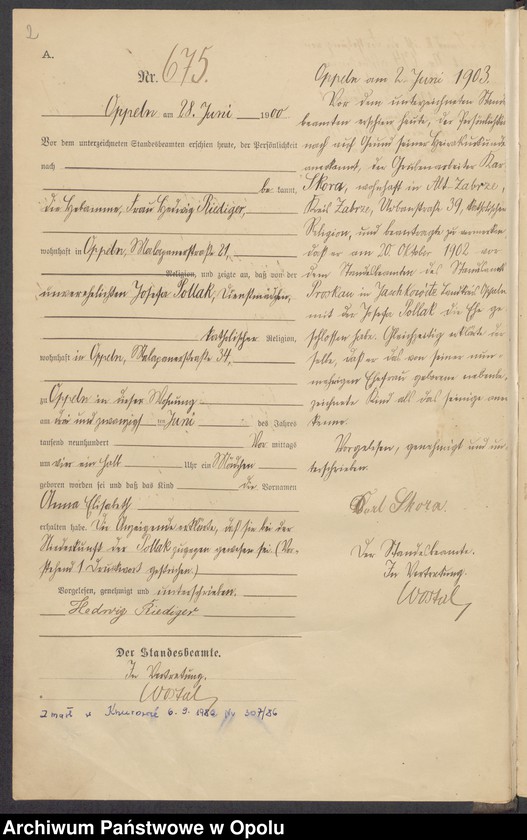 2
A.
Nr. 675.
Oppeln am 28. Juni 1900.
Vor dem unterzeichneten Standesbeamten erschien heute, der Persönlichkeit
nach
be kannt,
die Hebamme, Frau Hedwig Riediger,
wohnhaft in Oppeln, Malapanerstraße 21,
Religion, und zeigte an, daß von der
unverehelichten Josefa Pollak, Dienstmädchen,
katholischer Religion,
wohnhaft in Oppeln, Malapanerstraße 34,
zu Oppeln in dieser Wohnung
am drei und zwanzigsten Juni des Jahres
tausend neunhundert Vor mittags
um vier ein halb Uhr ein Mädchen
geboren worden sei und daß das Kind die Vornamen
Anna Elisabeth
erhalten habe. Die Anzeigende erklärte, daß sie bei der
Niederkunft der Pollak zugegen gewesen sei. (Vor-
stehend 1 Druckwort gestrichen.)
Vorgelesen, genehmigt und unterschrieben.
Hedwig Riediger
Der Standesbeamte.
In Vertretung.
Wostal
Zmarł w 6. 9. 1986 Nr 307/86
Oppeln am 2. Juni 1903.
Vor dem unterzeichneten Stand
beamten erschien heute, der Persönlichkeit
nach auf Grund seiner Heiratsurkunde
anerkannt, der Grubenarbeiter Karl
Skora, wohnhaft in Alt Zabrze,
Kreis Zabrze, 39, katholischer
Religion, und beantragte zu vermerken,
daß er am 20. Oktober 1902 vor
dem Standesbeamten des Standesamts
Proskau in Landkreis Oppeln
mit der Josefa Pollak die Ehe ge
schlossen habe. Gleichzeitig erklärte der
selbe, daß er das von seiner nun-
mehrigen Ehefrau geborene nebenbe
zeichnete Kind als das seinige aner
kenne.
Vorgelesen, genehmigt und un-
terschrieben.
Karl Skora.
Der Standesbeamte.
In Vertretung.
Wostal
Archiwum Państwowe w Opolu